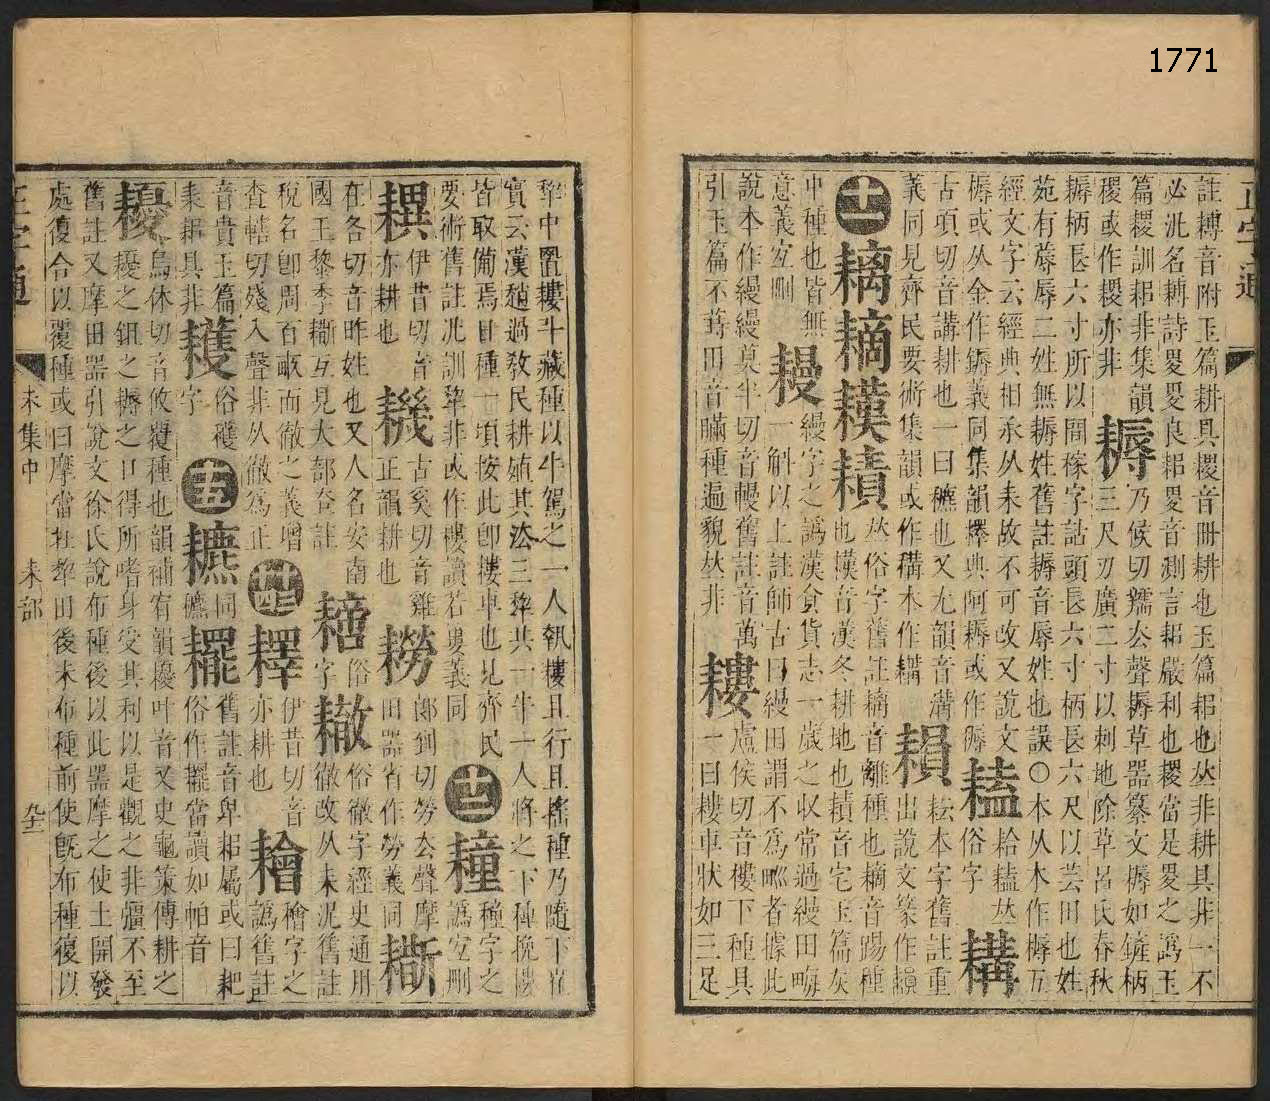 1771
正字通
註䎔音附玉篇耕具㮨音冊耕也玉篇耜也𠀤非耕具非一不
必泥名䎔詩畟畟良耜畟音測言耜嚴利也稷當是畟之譌玉
篇䎡訓耜非集韻
稷或作䎡亦非
耨
乃候切獳去聲耨草器纂文耨如鏟柄
三尺刃廣二寸以刺地除草呂氏春秋
耨柄長六寸所以間稼字詁頭長六寸柄長六尺以芸田也姓
苑有蓐辱二姓無耨姓舊註耨音辱姓也誤○本从木作槈五
經文字云經典相承从耒故不可改又說文
槈或从金作鎒義同集韻檡典阿耨或作𨢏
𦔆
𦔆𠀤
俗字
耩
古項切音講耕也一曰穮也又尤韻音溝
義同見齊民要術集韻或作構本作耩
耘本字舊註重
出說文篆作
十一
𠀤俗字舊註音離種也音踢種
也音漢冬耕地也音宅玉篇灰
中種也皆無
意義宜刪
縵字之譌漢食貨志一歲之收常過縵田畮
一斛以上註師古曰縵田謂不爲甽者據此
說本作縵縵莫半切音幔舊註音萬
引玉篇不蒔田音瞞種遍貌𠀤非
耬
盧侯切音樓下種具
一曰耬車狀如三足
犂中置耬斗藏種以牛駕之一人執耬且行且搖種乃隨下崔
實云漢趙過敎民耕殖其法三犂共一牛一人將之下種挽耬
皆取備焉日種一頃按此卽耬車也見齊民
要術舊註汎訓犂非或作樓讀若婁義同
十二
𦔛
種字之
譌宜刪
𦔜
伊昔切音
亦耕也
機
古矣切音雞
正韻耕也
耮
郎到切勞去聲摩
田器省作勞義同
𦔓
在各切音昨姓也又人名安南
國王黎季𦔓互見大部夳註
俗字
俗徹字經史通用
徹改从耒泥舊註
稅名卽周百畝而徹之義增
查轄切殘入聲非从徹爲正
十四
𦔥
伊昔切音
亦耕也
穧字之
譌舊註
音貴玉篇
耒耜具非
俗穫
字
十五
穮
同
穮
䎱
舊註音卑耜屬或曰耙
俗作䎱當讀如帕音
耰
烏休切音攸覆種也韻補宥韻櫌叶音又史龜策傳耕之
耰之鉏之耨之口得所嗜身受其利以是觀之非彊不至
舊註又摩田器引說文徐氏說布種後以此器摩之使土開發
處復合以覆種或曰摩當在犂田後未布種前使旣布種復以
未集中
耒部